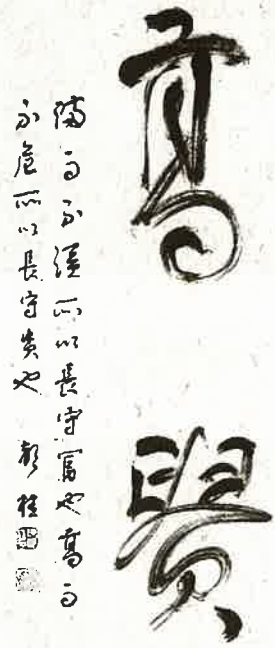 高貴
滿而不溢所以長守富也高而
不危所以長守貴也